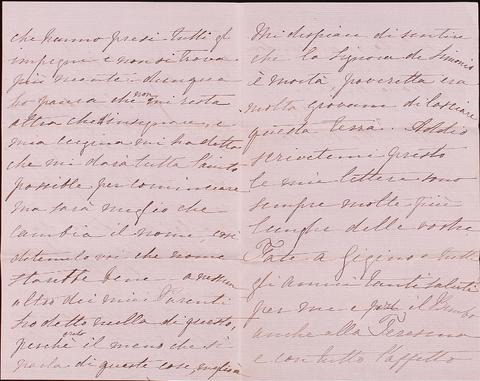 che hanno presi tutti gl
impegni e non si trova
più niente. dunque
ho paura che non mi resta
altro che l'insegnare, e
mia cugina mi ha detto
che mi darà tutto l'aiuto
possibile per cominciare
ma sarà meglio che
cambia il nome, così
ditemelo voi che nome
starebbe bene. a nessun
altro dei miei Parenti
ho detto nulla di questo,
perchè il meno che si
parla di queste cose, meglio è
Mi dispiace di sentire
che la Signora de Simonis
è morta, poveretta era
molto giovane di lasciare
questa terra. Addio
scrivetemi presto
le mie lettere sono
sempre molto più
lunghe delle vostre
Fate a Gigino e tutti
gli amici tanti saluti
per me e il
anche alla Teresina
e con tutto l'affetto